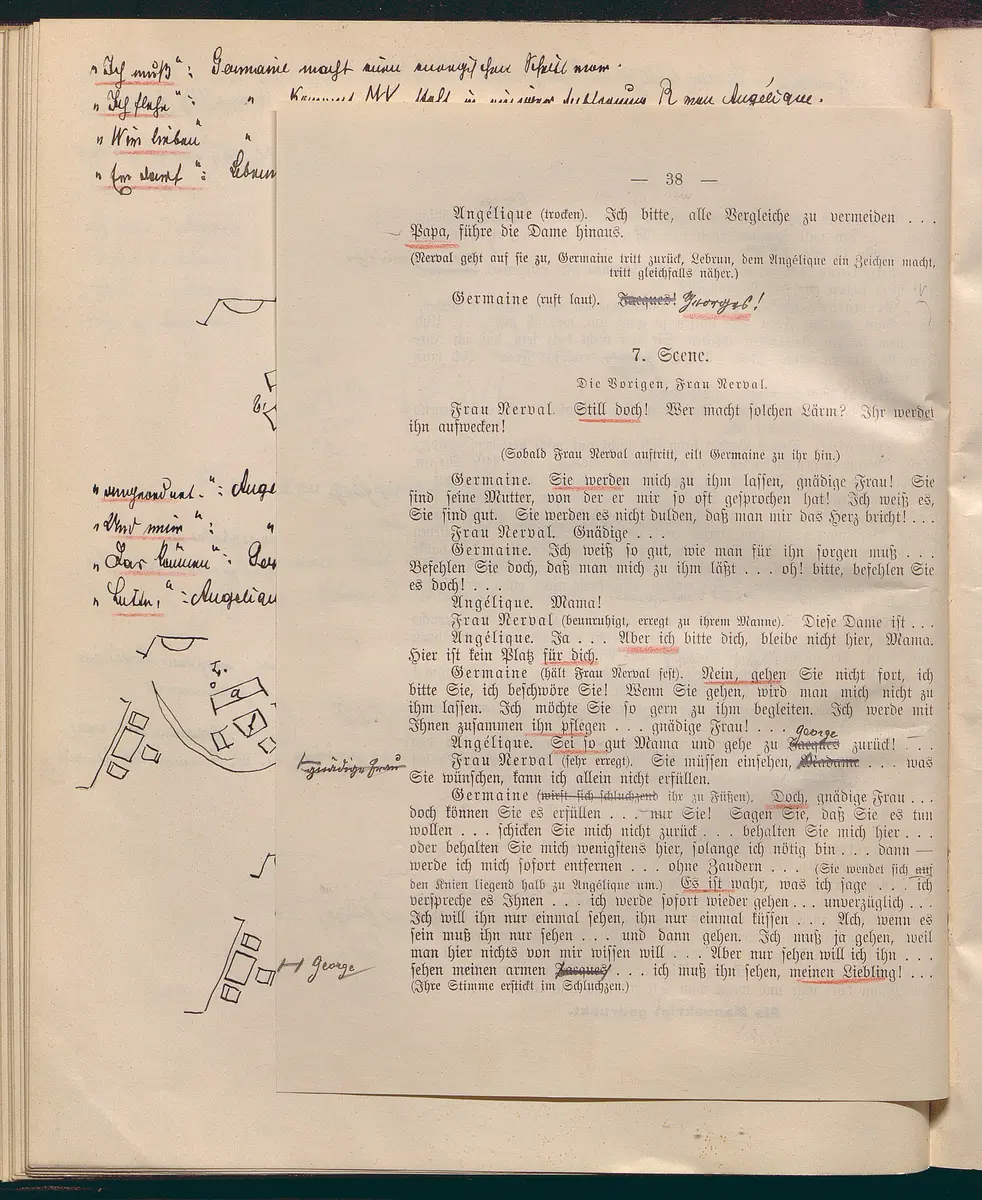 "Ich muß": Germaine macht einen energischen Schritt vor.
"Ich flehe": " Kommt MV
R von Angélique.
"Wir lieben" "
"Er darf": Lebrun
— 38 —
Angélique (trocken). Ich bitte, alle Vergleiche zu vermeiden . . .
Papa, führe die Dame hinaus.
(Nerval geht auf sie zu, Germaine tritt zurück, Lebrun, dem Angélique ein Zeichen macht,
tritt gleichfalls näher.)
Germaine (ruft laut). Jacques! Georges!
7. Scene.
Die Vorigen, Frau Nerval.
Frau Nerval. Still doch! Wer macht solchen Lärm? Ihr werdet
ihn aufwecken!
(Sobald Frau Nerval auftritt, eilt Germaine zu ihr hin.)
Germaine. Sie werden mich zu ihm lassen, gnädige Frau! Sie
sind seine Mutter, von der er mir so oft gesprochen hat! Ich weiß es,
Sie sind gut. Sie werden es nicht dulden, daß man mir das Herz bricht! . . .
Frau Nerval. Gnädige . . .
Germaine. Ich weiß so gut, wie man für ihn sorgen muß . . .
Befehlen Sie doch, daß man mich zu ihm läßt . . . oh! bitte, befehlen Sie
es doch! . . .
Angélique. Mama!
Frau Nerval (beunruhigt, erregt zu ihrem Manne). Diese Dame ist . . .
Angélique. Ja . . . Aber ich bitte dich, bleibe nicht hier, Mama.
Hier ist kein Platz für dich.
Germaine (hält Frau Nerval fest). Nein, gehen Sie nicht fort, ich
bitte Sie, ich beschwöre Sie! Wenn Sie gehen, wird man mich nicht zu
ihm lassen. Ich möchte Sie so gern zu ihm begleiten. Ich werde mit
Ihnen zusammen ihn pflegen . . . gnädige Frau! . . .
george
Angélique. Sei so gut Mama und gehe zu Jacques zurück! . . .
gnädige Frau
Frau Nerval (sehr erregt). Sie müssen einsehen, Madame . . . was
Sie wünschen, kann ich allein nicht erfüllen.
Germaine (wirft sich schluchzend ihr zu Füßen). Doch, gnädige Frau . . .
doch können Sie es erfüllen . . . nur Sie! Sagen Sie, daß Sie es tun
wollen . . . schicken Sie mich nicht zurück . . . behalten Sie mich hier . . .
oder behalten Sie mich wenigstens hier, solange ich nötig bin . . . dann —
werde ich mich sofort entfernen . . . ohne Zaudern . . . (Sie wendet sich auf
den Knien liegend halb zu Angélique um.) Es ist wahr, was ich sage . . . ich
verspreche es Ihnen . . . ich werde sofort wieder gehen . . . unverzüglich . . .
Ich will ihn nur einmal sehen, ihn nur einmal küssen . . . Ach, wenn es
sein muß ihn nur sehen . . . und dann gehen. Ich muß ja gehen, weil
man hier nichts von mir wissen will . . . Aber nur sehen will ich ihn . . .
george
sehen meinen armen Jacques . . . ich muß ihn sehen, meinen Liebling! . . .
(Ihre Stimme erstickt im Schluchzen.)
"angeordnet.": Ange
"Und wenn": "
"Das können":
: Angeliqu